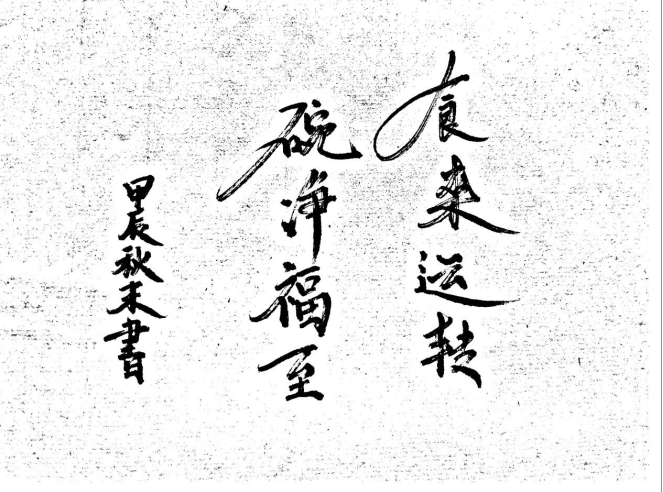 食来运转
碗净福至
甲辰秋末書